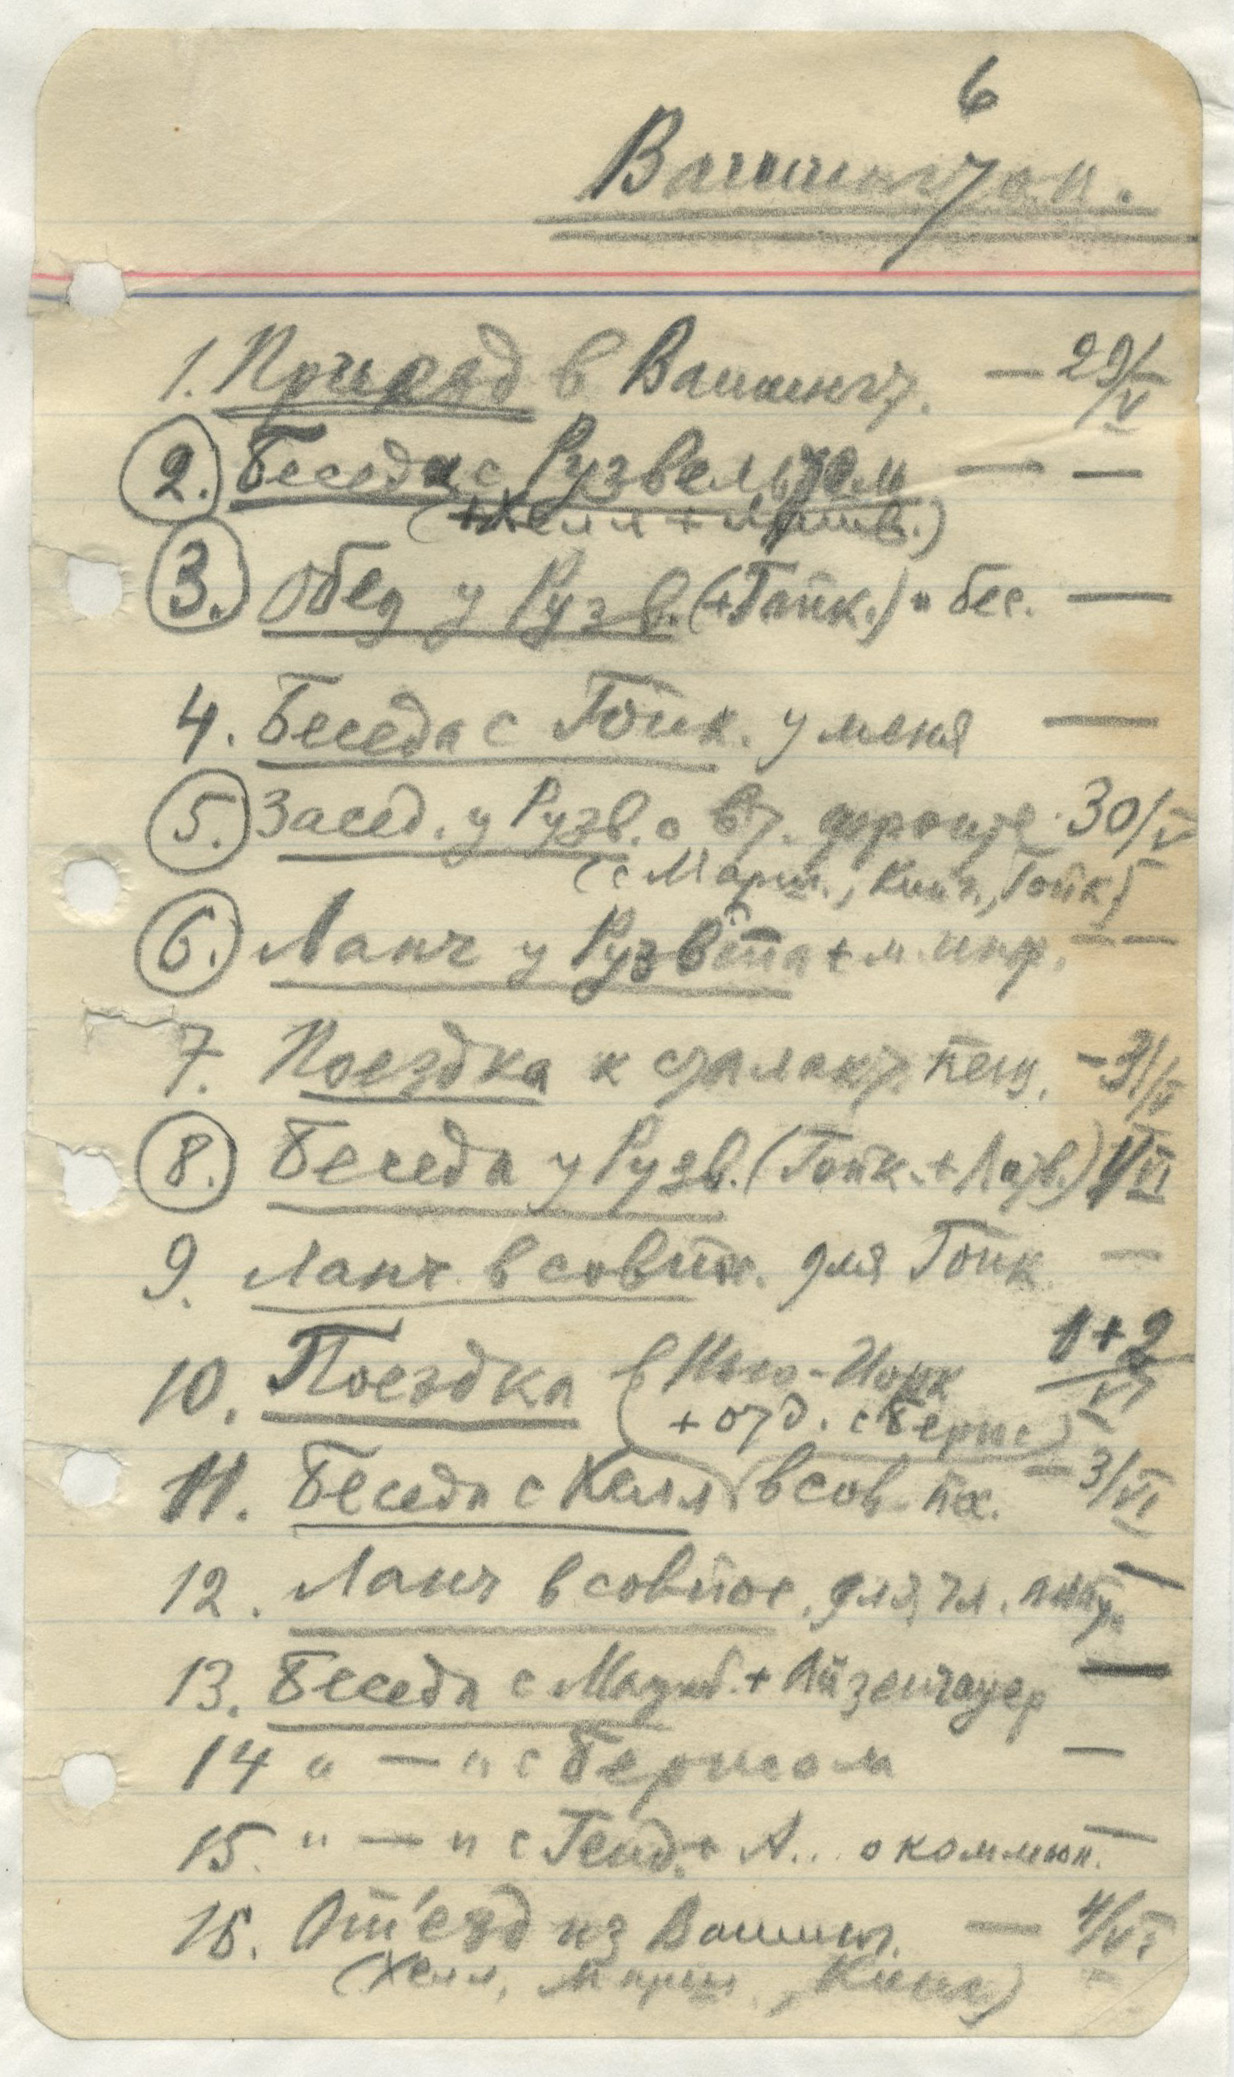 6
Вашингтон.
1. Приезд в Вашингт. — 29/V
2. Беседа с Рузвельтом — —
(+Хелл + Литв.)
3. Обед у Рузв. (+Гопк.) + бес. —
4. Беседа с Гопк. у меня —
5. Засед. у Рузв. о вт. фронте. 30/V
(с Марш., Кинг., Гопк)
6. Ланч у Рузв + м. инф. — —
7. Поездка к — 31/V
8. Беседа у Рузв. (Гопк. + Литв.) 1/VI
9. Ланч в совпос. для Гопк —
10. Поездка в Нью-Йорк 1+2/VI
+ отд. с Бернс)
11. Беседа с Хелл в сов. пос. — 3/VI
12. Ланч в совпос. для чл. —
13. Беседа с + Айзенгауер —
14 " — " с Бернсом —
15. " — " с Генд. + А... о коммюн. —
16. От'езд из Вашинг. — 4/VI
(Хелл, Марш, Кинг)